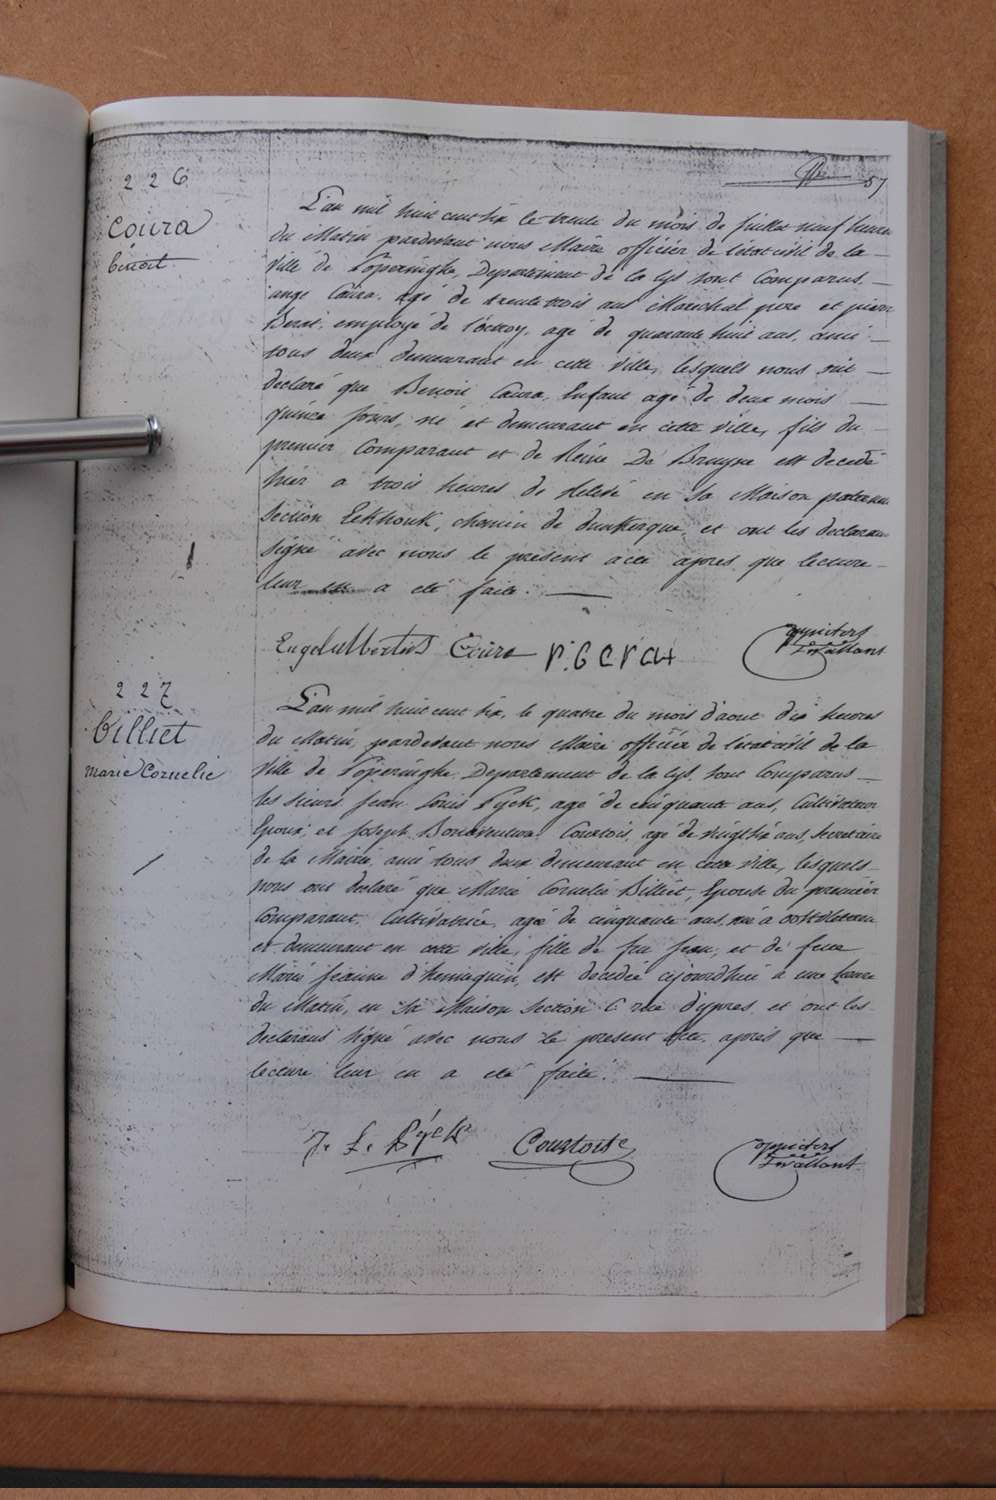 57
226
Coura
benoit
L'an mil huit cent dix le trente du mois de juillet neuf heures
du Matin pardevant nous Maire officier de l'état civil de la
Ville de Poperinghe, Departement de la Lys sont Comparus
ange Coura, agé de trente trois ans Maréchal pere et pierre
employé de l'octroy, age de quarante huit ans, ami
tous deux demeurant en cette ville, lesquels nous ont
declaré que Benoit Coura, Enfant agé de deux mois
quinze jours, né et demeurant en cette ville, fils du
premier Comparant et de Reine De Bruyne est decedé
hier a trois heures de relevé en sa Maison paternelle
Section Eekhouk, chemin de dunkerque, et ont les declarans
signé avec nous le present acte apres que lecture
leur en a eté faite.
Engelbertus Coura P. Gerat
227
Billiet
Marie Cornelie
L'an mil huit cent dix, le quatre du mois d'aout dix heures
du Matin, pardevant nous Maire officier de l'état civil de la
Ville de Poperinghe, Departement de la Lys, sont Comparus
les sieurs Jean Louis Pyck, agé de cinquante ans, Cultivateur
Epoux, et Joseph Bonaventure Courtois, agé de vingt six ans, Secretaire
de la Mairie, ami tous deux demeurant en cette ville, lesquels
nous ont declaré que Marie Cornelie Billiet, Epouse du premier
Comparant, Cultivatrice, agée de cinquante ans, né a oostvleteren
et demeurant en cette ville, fille de feu Jean, et de feue
Marie Jeanne d'hennequin, est decedée cejourdhui à une heure
du Matin, en sa Maison Section C rue d'ypres, et ont les
declarans signé avec nous le present acte, après que
lecture leur en a eté faite.
J. L. Pyck Courtois